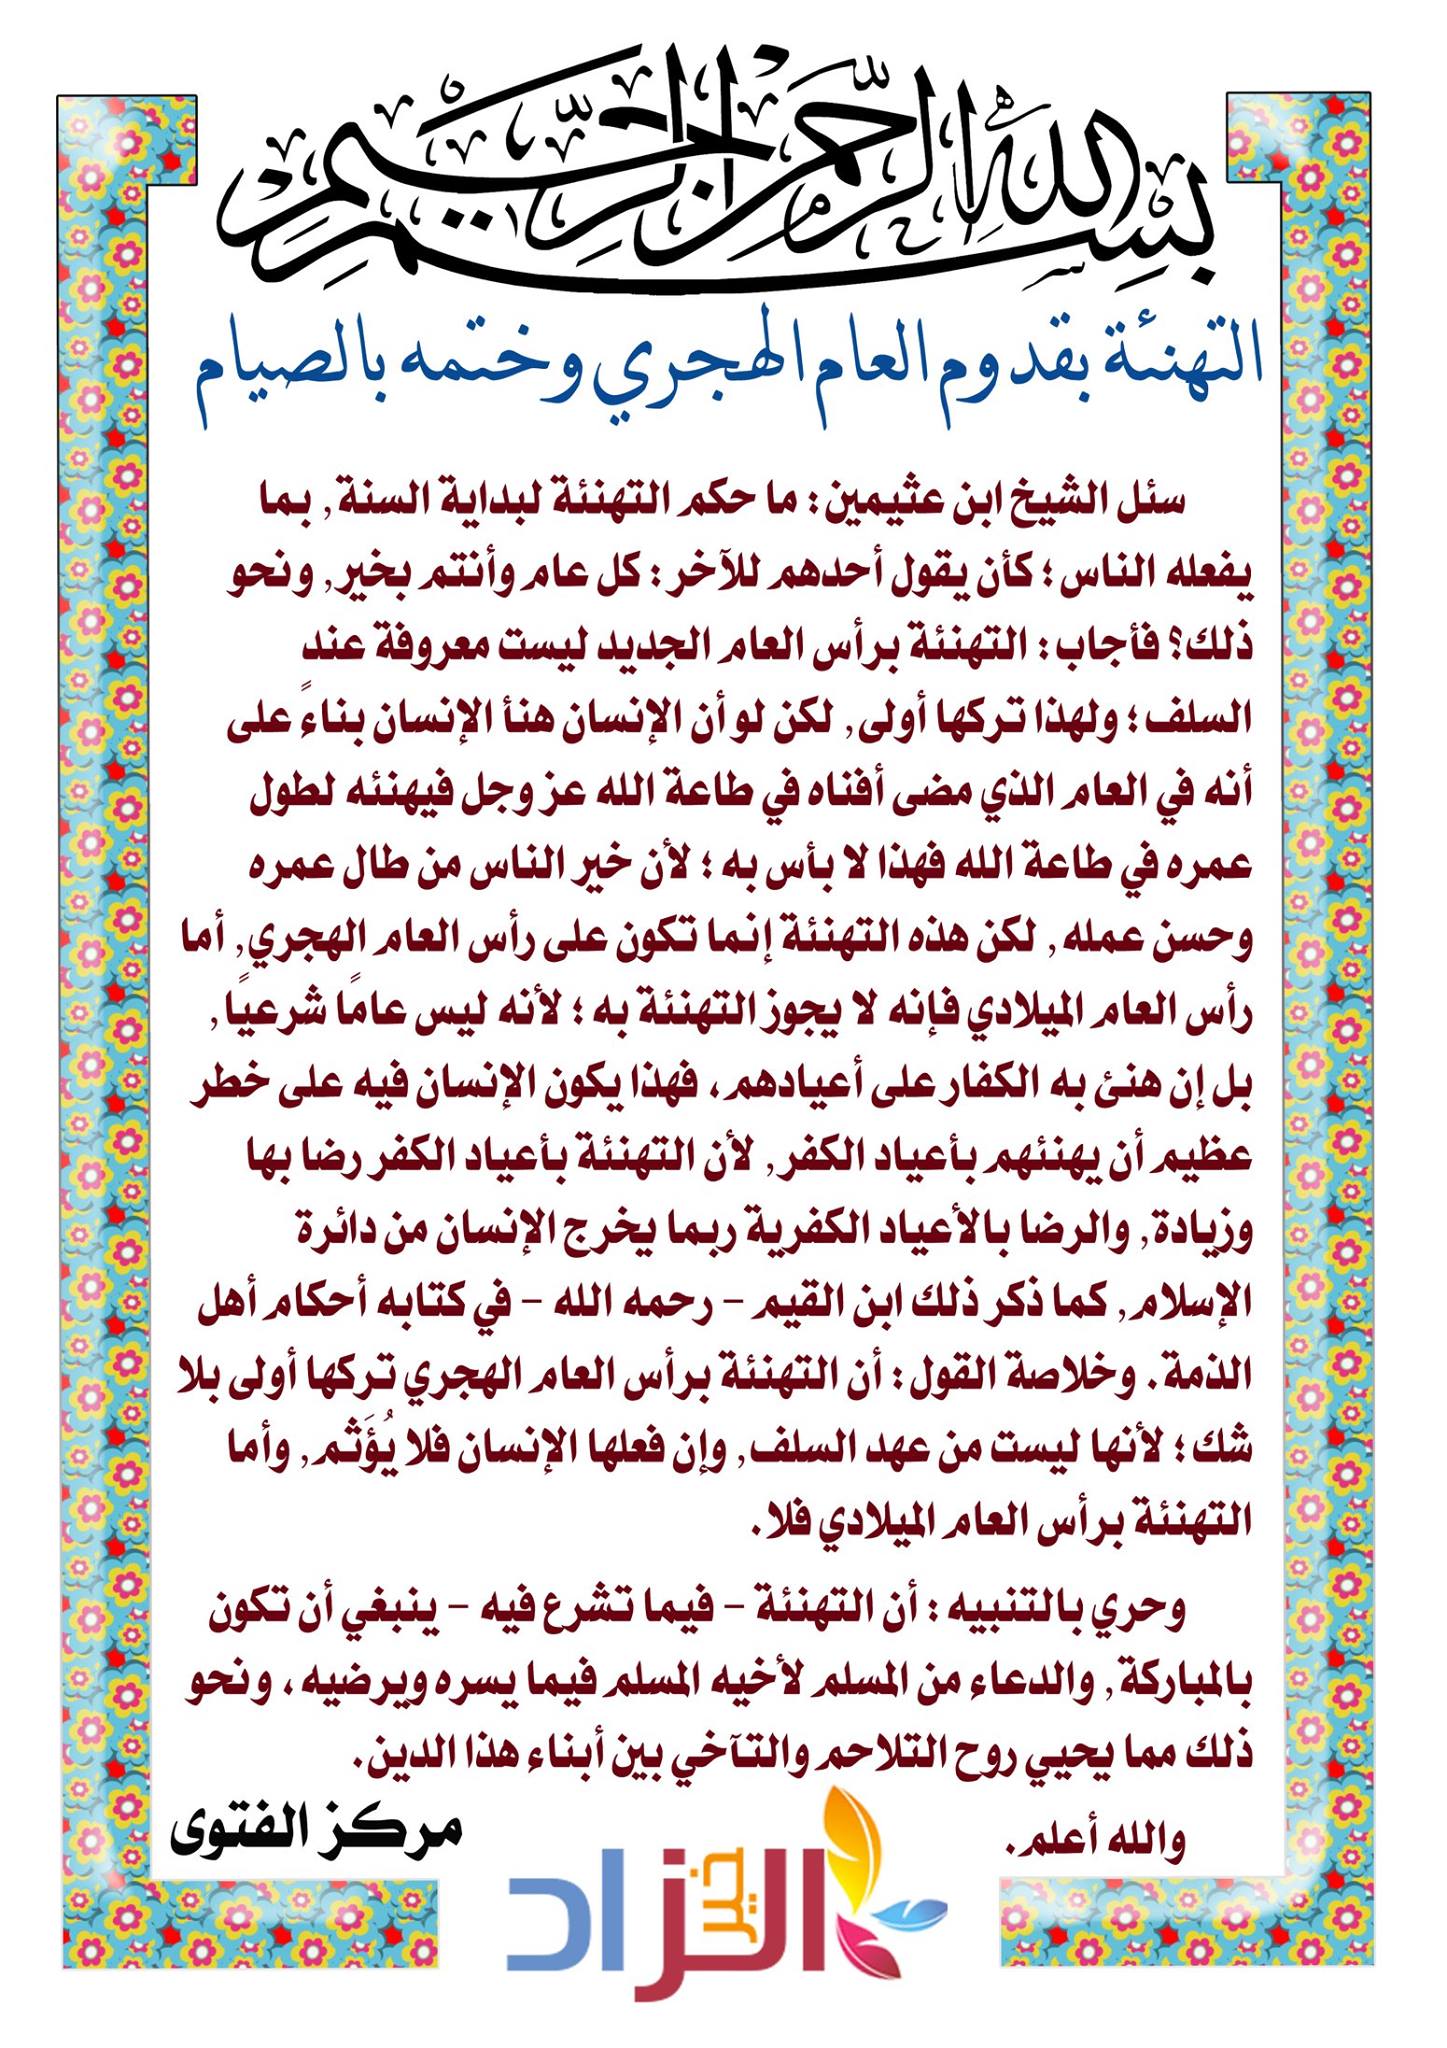 بسم الله الرحمن الرحيم
التهنئة بقدوم العام الهجري وختمه بالصيام
سئل الشيخ ابن عثيمين: ما حكم التهنئة لبداية السنة, بما
يفعله الناس؛ كأن يقول أحدهم للآخر: كل عام وأنتم بخير, ونحو
ذلك؟ فأجاب: التهنئة برأس العام الجديد ليست معروفة عند
السلف؛ ولهذا تركها أولى, لكن لو أن الإنسان هنأ الإنسان بناءً على
أنه في العام الذي مضى أفناه في طاعة الله عز وجل فيهنئه لطول
عمره في طاعة الله فهذا لا بأس به؛ لأن خير الناس من طال عمره
وحسن عمله, لكن هذه التهنئة إنما تكون على رأس العام الهجري, أما
رأس العام الميلادي فإنه لا يجوز التهنئة به؛ لأنه ليس عامًا شرعيًا,
بل إن هنئ به الكفار على أعيادهم، فهذا يكون الإنسان فيه على خطر
عظيم أن يهنئهم بأعياد الكفر, لأن التهنئة بأعياد الكفر رضا بها
وزيادة, والرضا بالأعياد الكفرية ربما يخرج الإنسان من دائرة
الإسلام, كما ذكر ذلك ابن القيم – رحمه الله – في كتابه أحكام أهل
الذمة. وخلاصة القول: أن التهنئة برأس العام الهجري تركها أولى بلا
شك؛ لأنها ليست من عهد السلف, وإن فعلها الإنسان فلا يُؤَثم, وأما
التهنئة برأس العام الميلادي فلا.
وحري بالتنبيه: أن التهنئة – فيما تشرع فيه – ينبغي أن تكون
بالمباركة, والدعاء من المسلم لأخيه المسلم فيما يسره ويرضيه، ونحو
ذلك مما يحيي روح التلاحم والتآخي بين أبناء هذا الدين.
والله أعلم.
مركز الفتوى
خير الزاد